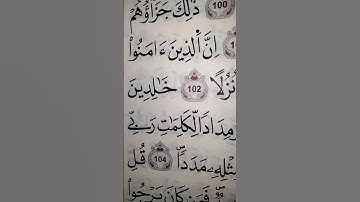 100 ذَٰلِكَ جَزَاؤُهُمْ
إِنَّ ٱلَّذِينَ ءَامَنُوا۟
نُزُلًا 102 خَٰلِدِينَ
مِدَادًا لِّكَلِمَٰتِ رَبِّى
ثْلِهِۦ مَدَدًا 104 قُلْ
فَمَن كَانَ يَرْجُوا۟